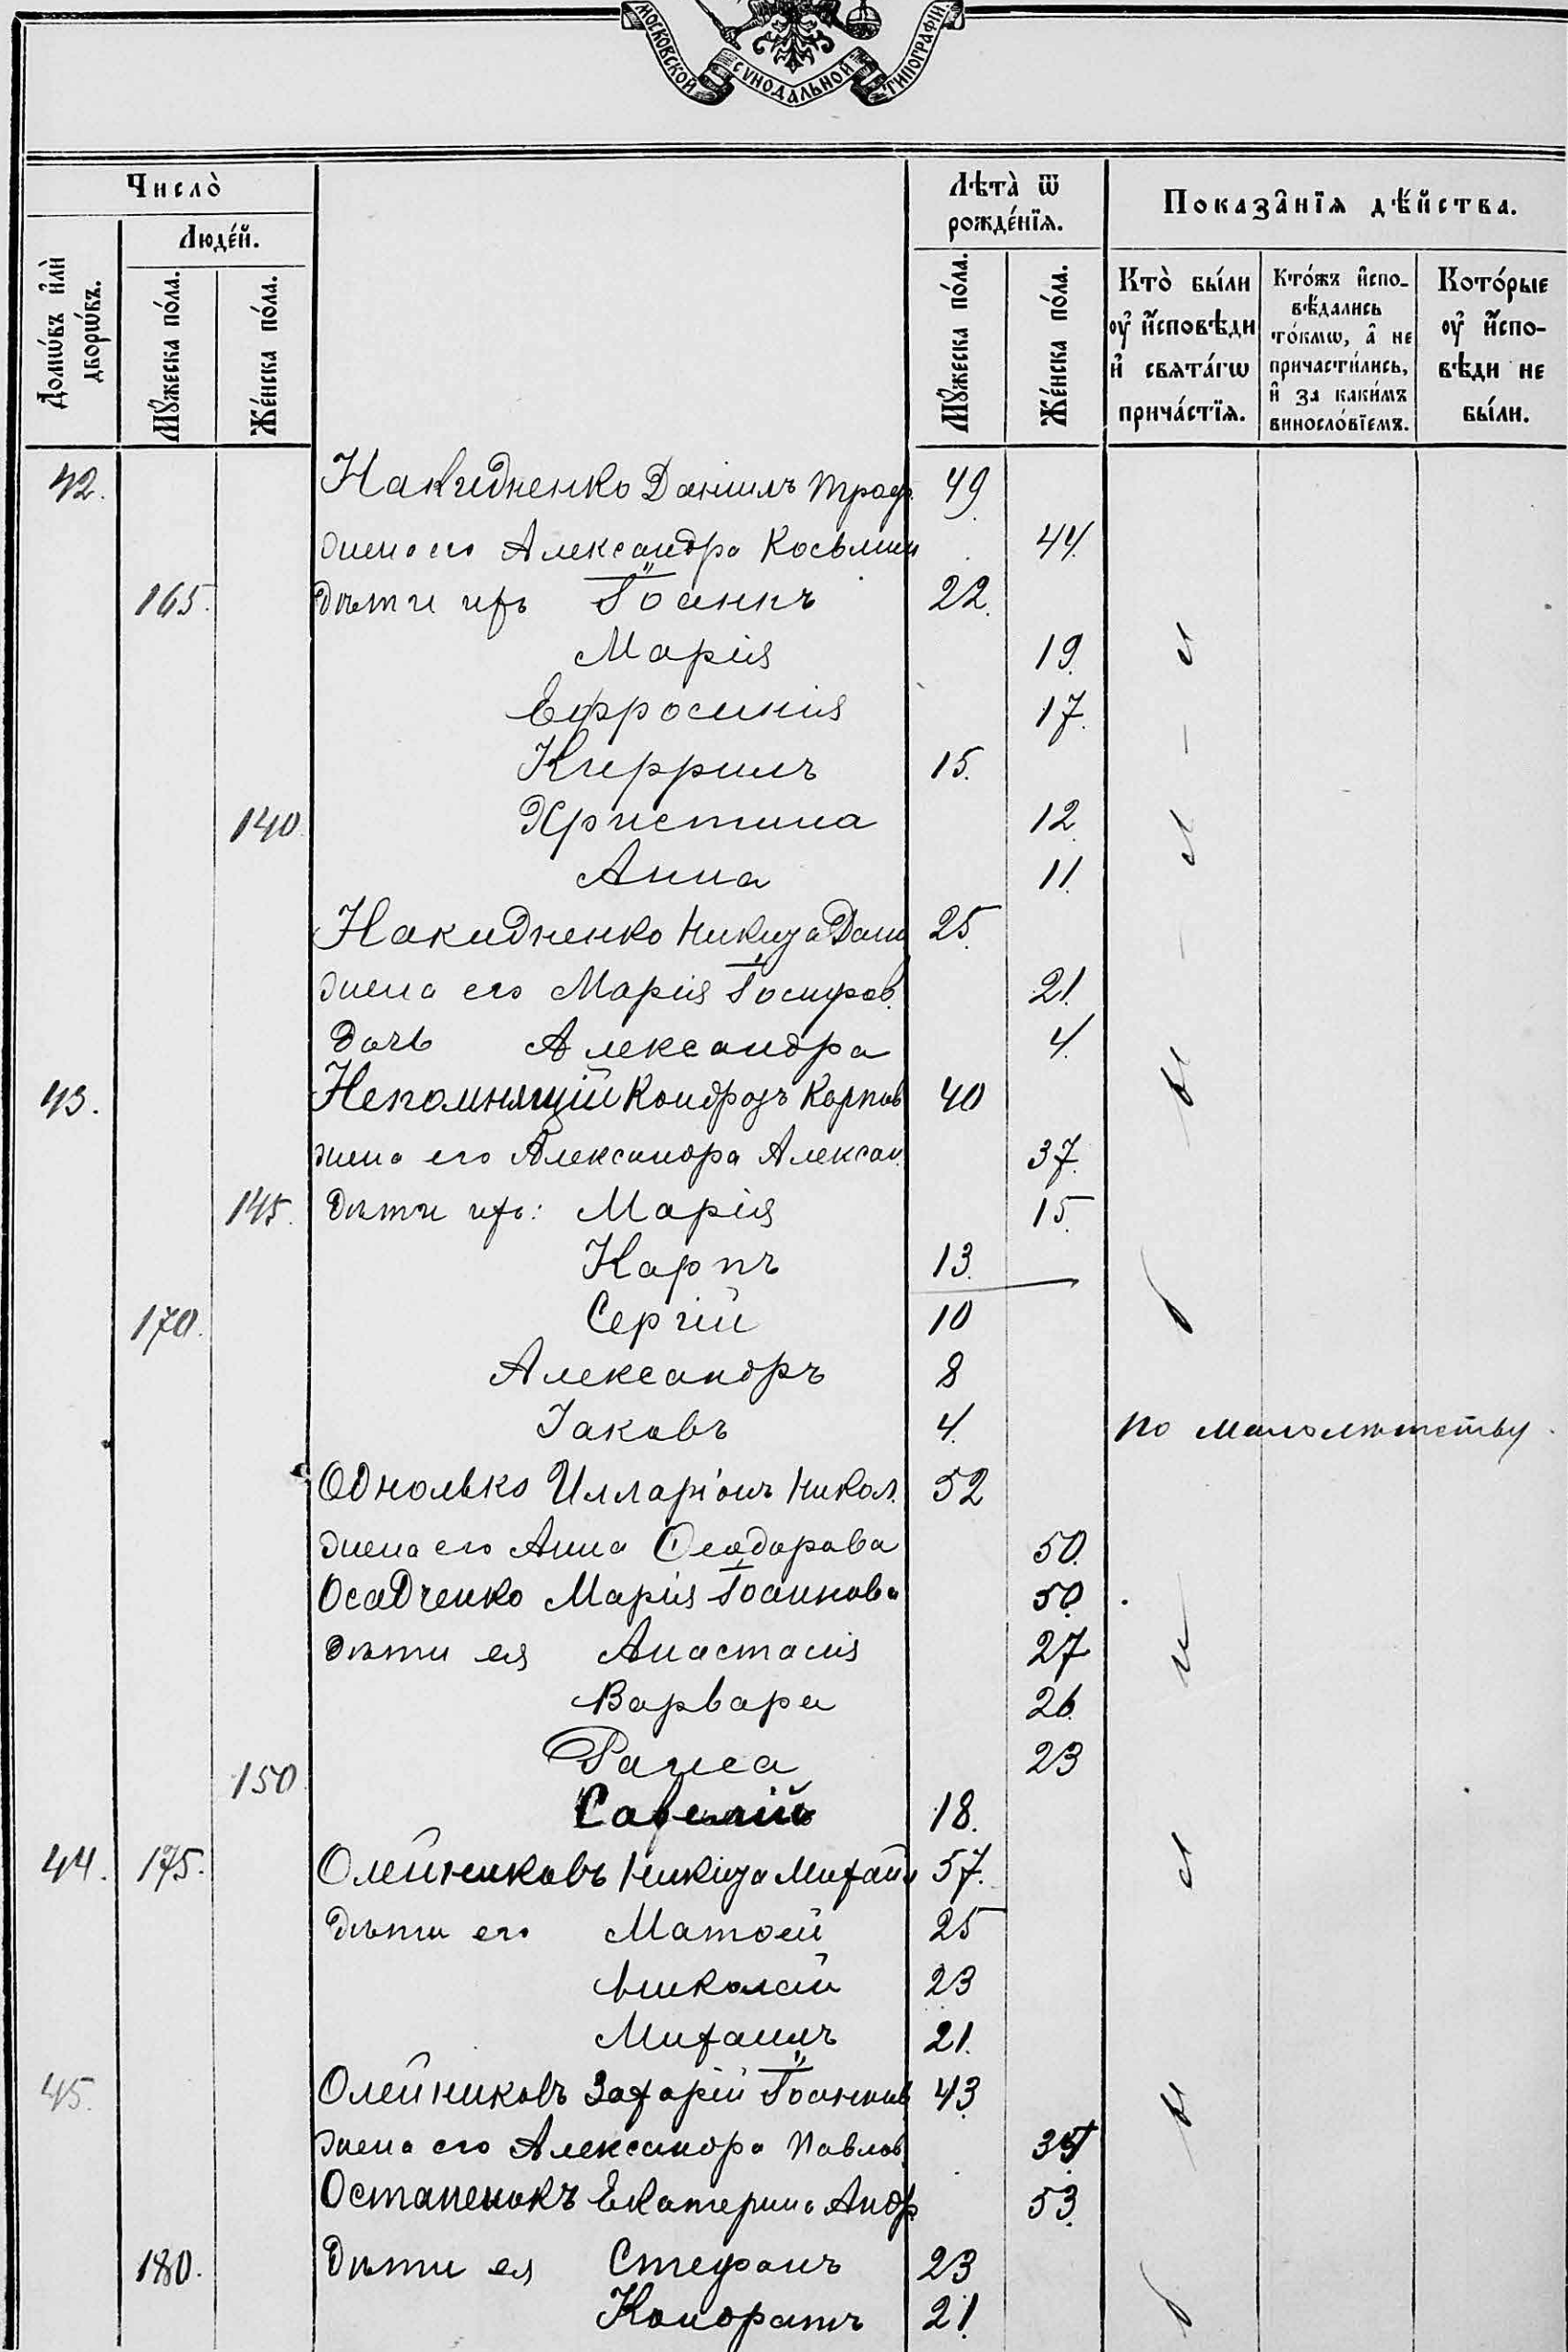 МОСКОВСКОЙ СѴНОДАЛЬНОЙ ТИПОГРАФІИ
Число̀
Людéй.
Домѡ́въ и҆лѝ дворѡ́въ.
Мꙋ́жеска по́ла.
Же́нска по́ла.
Лѣ́та ѿ рожде́нїѧ.
Мꙋ́жеска по́ла.
Же́нска по́ла.
Показа̑нїѧ дѣ́йства.
Кто̀ бы́ли оу҆ и҆́сповѣди и҆ свѧта́гѡ прича́стїѧ.
Кто́жъ и҆спо-вѣ́дались то́кмѡ, а҆ не причасти́лись, и҆ за каки́мъ винослóвїемъ.
Кото́рые оу҆ и҆́спо-вѣди не бы́ли.
42. Накидненко Даніилъ Троф. 49.
жена его Александра Косьмин 44.
165. дѣти ихъ Іоаннъ 22.
Марія 19.
Ефросинія 17.
Кирриллъ 15.
140. Христина 12.
Анна 11.
Накидненко Никита Дани 25.
жена его Марія Іосифов. 21.
дочь Александра 4.
43. Непомнящій Кондратъ Карпов 40
жена его Александра Алексан. 37.
145. дѣти ихъ: Марія 15.
Карпъ 13.
170. Сергій 10
Александръ 8
Іаковъ 4. по малолѣтству
Однолько Илларіонъ Никол. 52
жена его Анна Ѳеодорова 50.
Осадченко Марія Іоаннова 50.
дѣти ея Анастасія 27
Варвара 26.
150. Раиса 23
Савелій 18.
44. 175. Олейниковъ Никита Михаил 57.
дѣти его Матѳей 25
Николай 23
Михаилъ 21.
45. Олейниковъ Захарій Іоаннов 43.
жена его Александра Павлов.
Остапенокъ Екатерина Андр 53.
180. дѣти ея Стефанъ 23
Кондратъ 21.